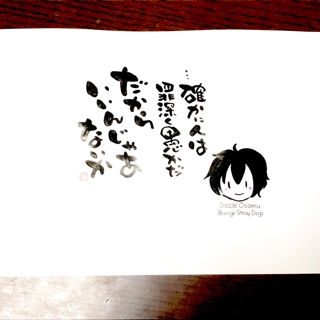 …確かに人は
罪深く愚かだ
だから
いいんじゃあ
ないか。
Dazai Osamu
Bungo Stray Dogs